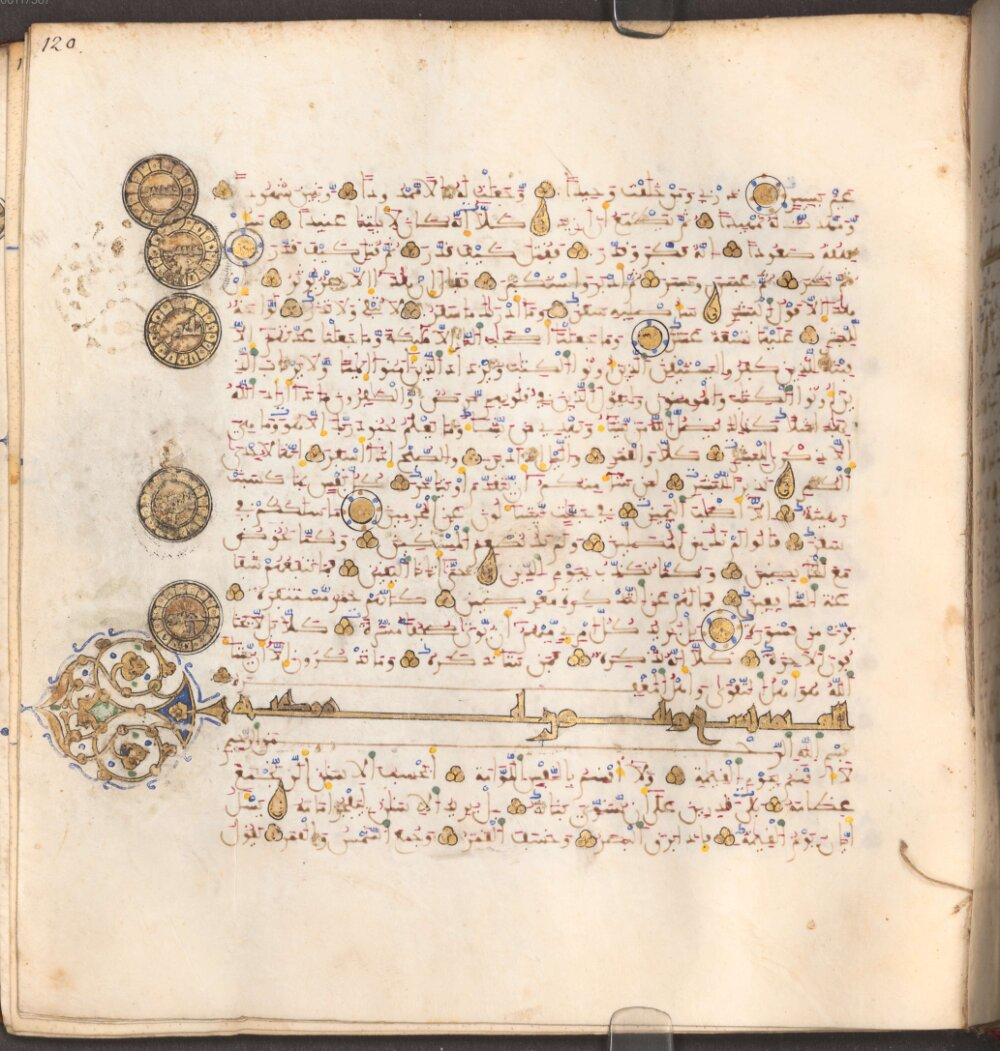 120
غير يسير ذرني ومن خلقت وحيدا وجعلت له مالا ممدودا وبنين شهودا
ومهدت له تمهيدا ثم يطمع أن أزيد كلا إنه كان لآيتنا عنيدا سأر
هقه صعودا إنه فكر وقدر فقتل كيف قدر ثم قتل كيف قدر
ثم نظر ثم عبس وبسر ثم أدبر واستكبر فقال إن هذا إلا سحر يؤثر إن
هذا إلا قول البشر سأصليه سقر وما أدريك ما سقر لا تبقي ولا تذر لواحة
للبشر عليها تسعة عشر وما جعلنا أصحب النار إلا ملئكة وما جعلنا عدتهم إلا
فتنة للذين كفروا ليستيقن الذين أوتوا الكتب ويزداد الذين آمنوا إيمنا ولا يرتاب الذ
ين أوتوا الكتب والمؤمنون وليقول الذين في قلوبهم مرض والكفرون ماذا أراد الله
بهذا مثلا كذلك يضل الله من يشاء ويهدي من يشاء وما يعلم جنود ربك إلا هو وما هي
إلا ذكرى للبشر كلا والقمر واليل إذ أدبر والصبح إذا أسفر إنها لإحدى
الكبر نذيرا للبشر لمن شاء منكم أن يتقدم أو يتأخر كل نفس بما كسبت
رهينة إلا أصحب اليمين في جنت يتساءلون عن المجرمين ما سلككم في
سقر قالوا لم نك من المصلين ولم نك نطعم المسكين وكنا نخوض
مع الخائضين وكنا نكذب بيوم الدين حتى أتينا اليقين فما تنفعهم شفا
عة الشفعين فما لهم عن التذكرة معرضين كأنهم حمر مستنفرة
فرت من قسورة بل يريد كل امرئ منهم أن يؤتى صحفا منشرة كلا بل لا يخا
فون الآخرة كلا إنه تذكرة فمن شاء ذكره وما تذكرون إلا أن يشاء
الله هو أهل التقوى وأهل المغفرة
مكية
بسم الله الرحمن الرحيم
لا أقسم بيوم القيمة ولا أقسم بالنفس اللوامة أيحسب الإنسن ألن نجمع
عظامه بلى قدرين على أن نسوي بنانه بل يريد الإنسن ليفجر أمامه يسئل
أيان يوم القيمة فإذا برق البصر وخسف القمر وجمع الشمس والقمر يقول